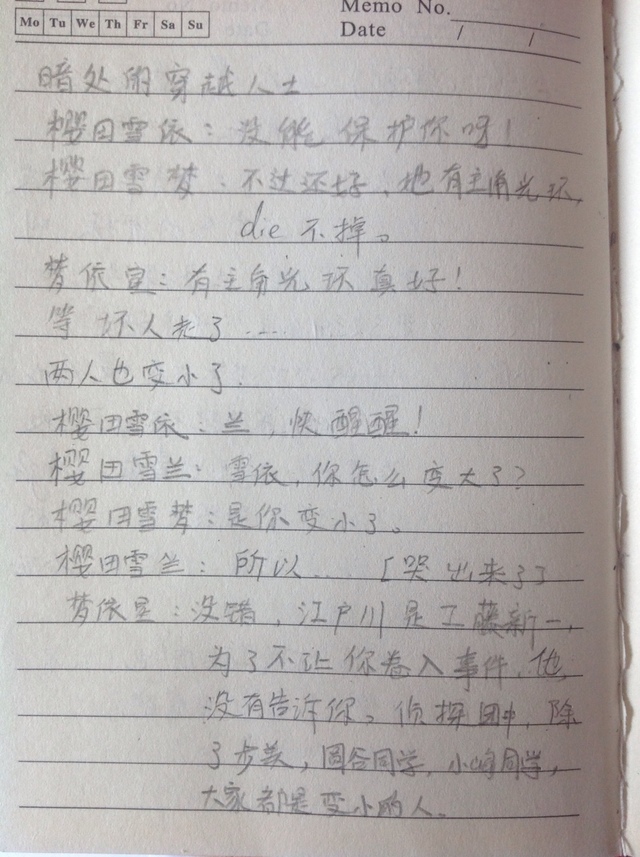 Memo No.
Mo Tu We Th Fr Sa Su
Date / /
暗处的穿越人士
樱田雪依：没能保护你呀！
樱田雪梦：不过还好，她有主角光环，
die不掉。
梦依室：有主角光环真好！
等坏人走了……
两人也变小了.
樱田雪依：兰，快醒醒！
樱田雪兰：雪依，你怎么变大了？
樱田雪梦：是你变小了。
樱田雪兰：所以……［哭出来了］
梦依室：没错，江户川是工藤新一，
为了不让你卷入事件，他
没有告诉你。侦探团中，除
了步美，圆谷同学，小嶋同学，
大家都是变小的人。